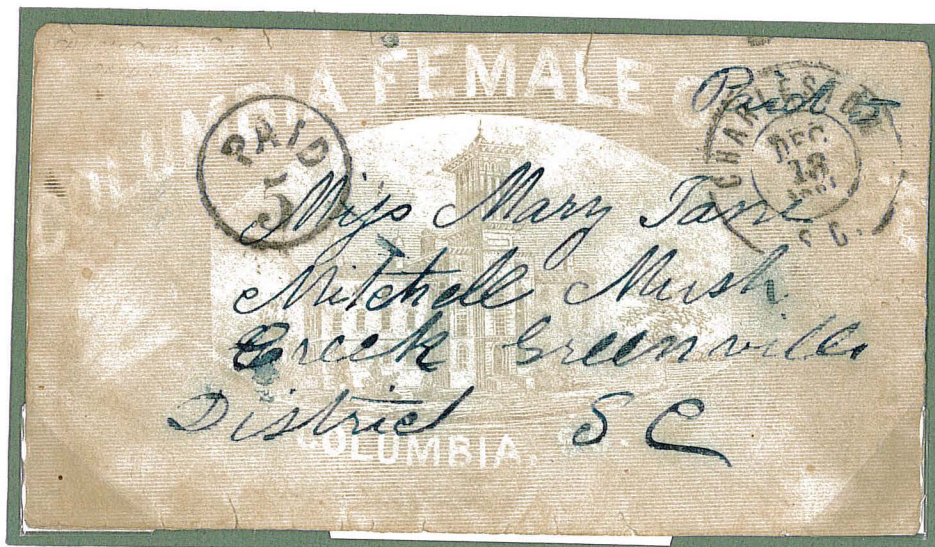 COLUMBIA FEMALE C
Paid 5
PAID
5
CHARLESTON
DEC
13
S.C.
Miss Mary Jane
Mitchell Mush
Creek Greenville
District S C
COLUMBIA, S.C.